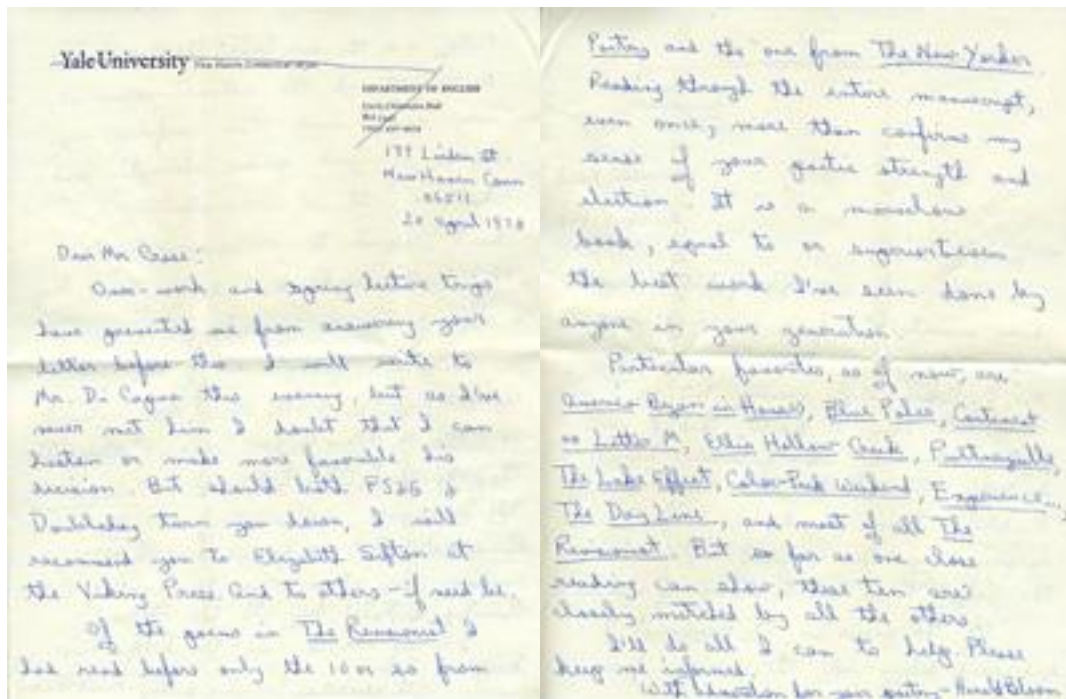 Yale University
DEPARTMENT OF ENGLISH
New Haven Conn
06511
20 April 1978
Dear Mr. Crase:
Over-work and spring lecture trips
have prevented me from answering your
letter before this. I will write to
Mr. Di Capua this evening, but as I've
never met him I doubt that I can
hasten or make more favorable his
decision. But should both FS&G &
Doubleday turn you down, I will
recommend you to Elizabeth Sifton at
the Viking Press and to others - if need be.
Of the poems in The Revisionist I
had read before only the 10 or so from
Poetry and the one from The New Yorker.
Reading through the entire manuscript,
even once, more than confirms my
sense of your poetic strength and
election. It is a marvelous
book, equal to or
the best work I've seen done by
anyone in your generation.
Particular favorites, as of now, are
America Began in Houses, Blue Poles, Continent
as Letter M, Ellis Hollow Creek, Pultneyville,
The Lake Effect, Cabin-Park Weekend, Experience...,
The Day Line, and most of all The
Revisionist. But so far as one close
reading can show, these ten are
closely matched by all the others.
I'll do all I can to help. Please
keep me informed.
With admiration for your poetry - Harold Bloom